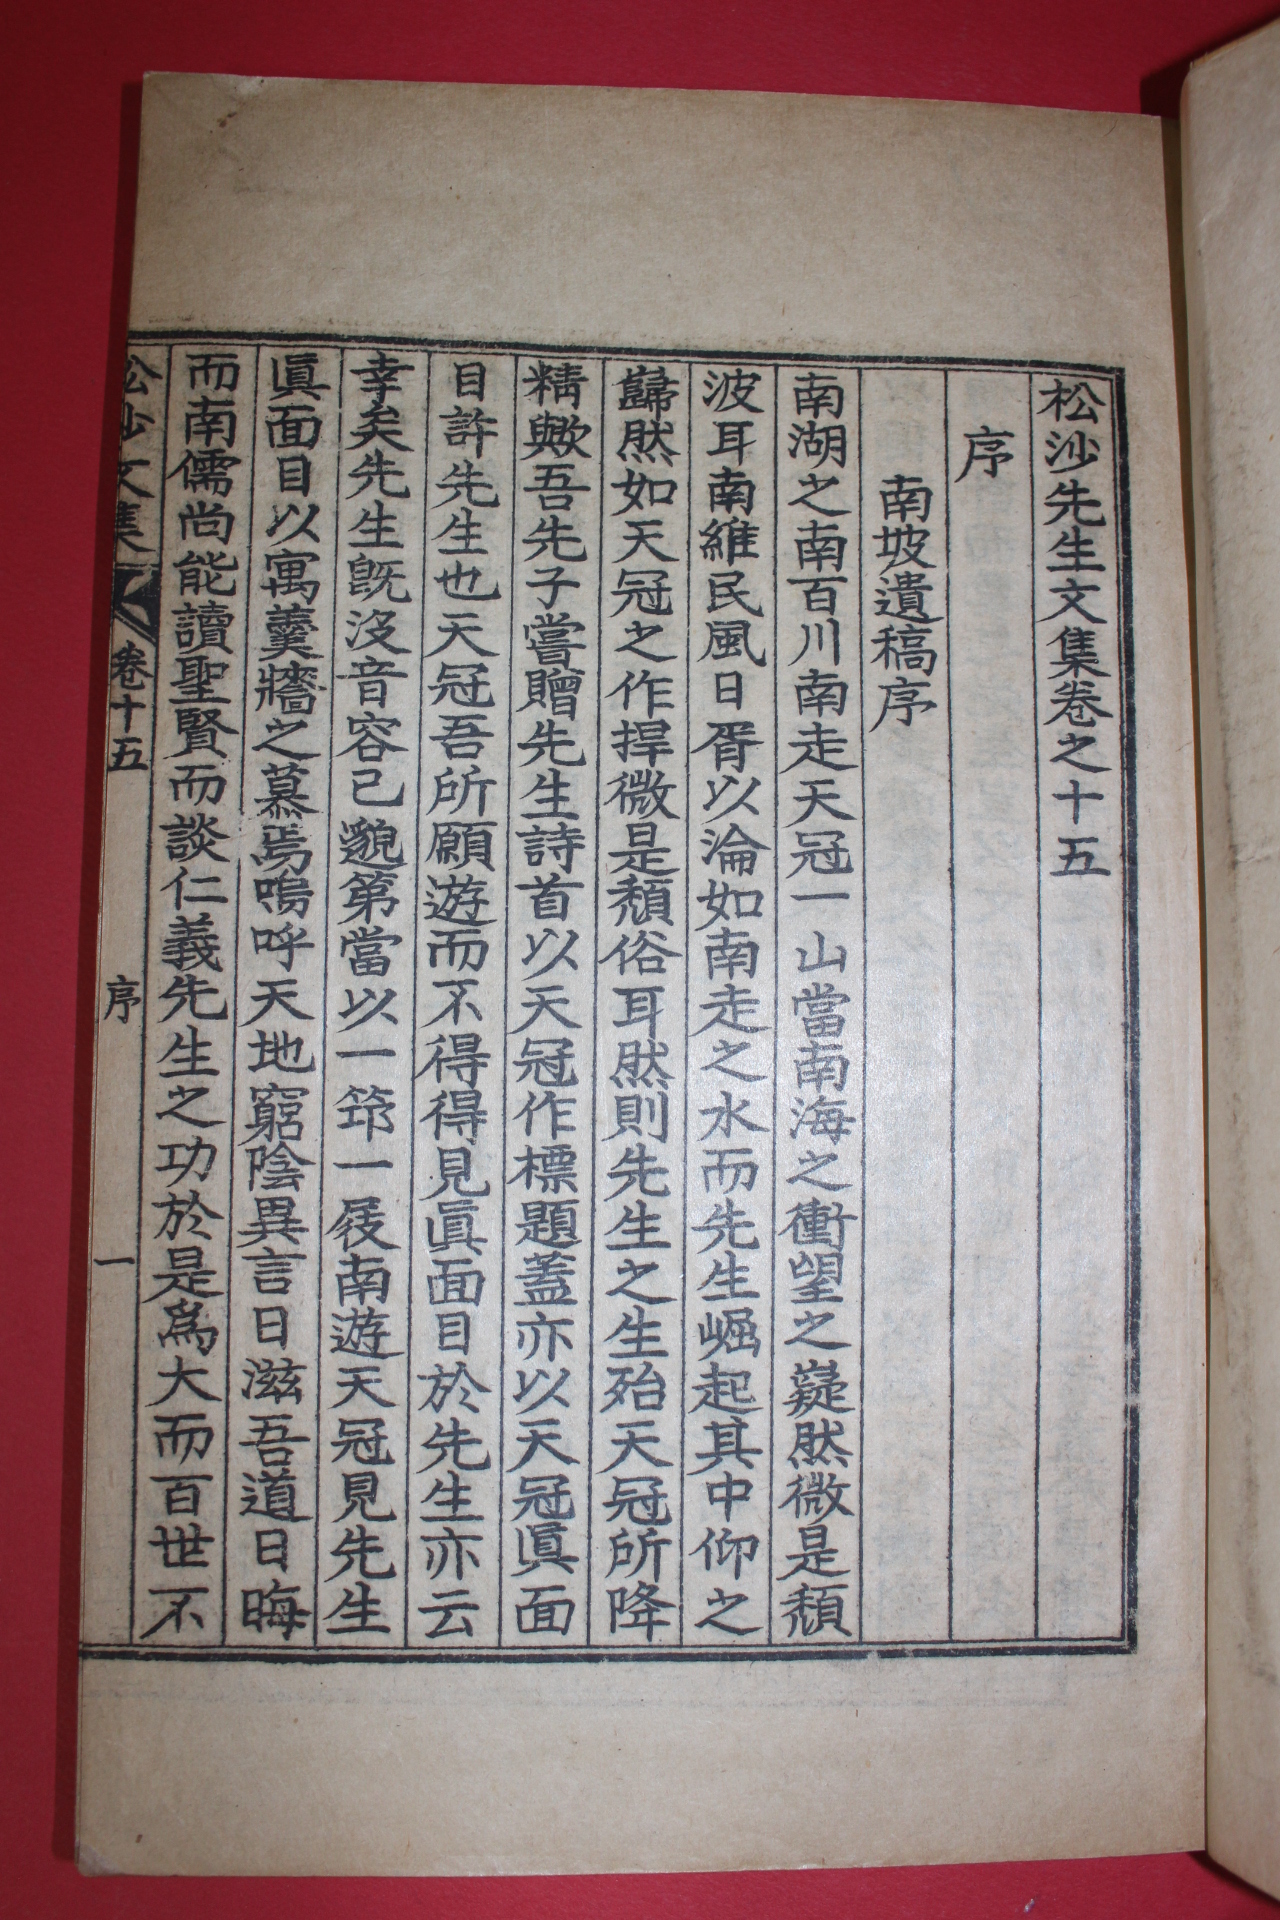 松沙先生文集卷之十五
序
南坡遺稿序
南湖之南百川南走天冠一山當南海之衝望之嶷然微是頹
波耳南維民風日胥以淪如南走之水而先生崛起其中仰之
巋然如天冠之作捍微是頹俗耳然則先生之生殆天冠所降
精歟吾先子嘗贈先生詩首以天冠作標題蓋亦以天冠眞面
目許先生也天冠吾所願遊而不得得見眞面目於先生亦云
幸矣先生旣沒音容已邈第當以一笻一屐南遊天冠見先生
眞面目以寓羹牆之慕焉嗚呼天地窮陰異言日滋吾道日晦
而南儒尙能讀聖賢而談仁義先生之功於是爲大而百世不
松沙文集 卷十五 序 一